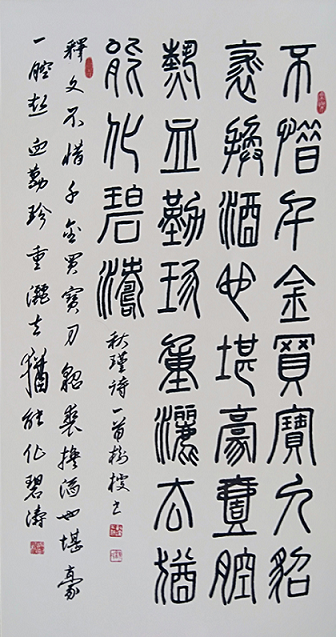 不惜千金買寶刀貂
裘換酒也堪豪壹腔
熱血勤珍重灑去猶
能化碧濤
秋瑾詩一首
釋文不惜千金買寶刀貂裘換酒也堪豪
一腔熱血勤珍重灑去猶能化碧濤